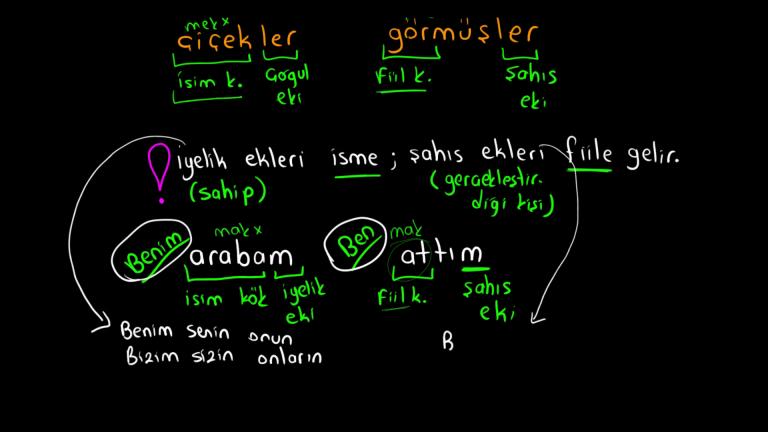 mek x
çiçekler görmüşler
isim k. Çoğul eki fiil k. şahıs eki
! iyelik ekleri isme ; şahıs ekleri fiile gelir.
(sahip) (gerçekleştirdiği kişi)
mak x mak
Benim arabam Ben attım
isim kök iyelik eki fiil k. şahıs eki
Benim senin onun
Bizim sizin onların
B